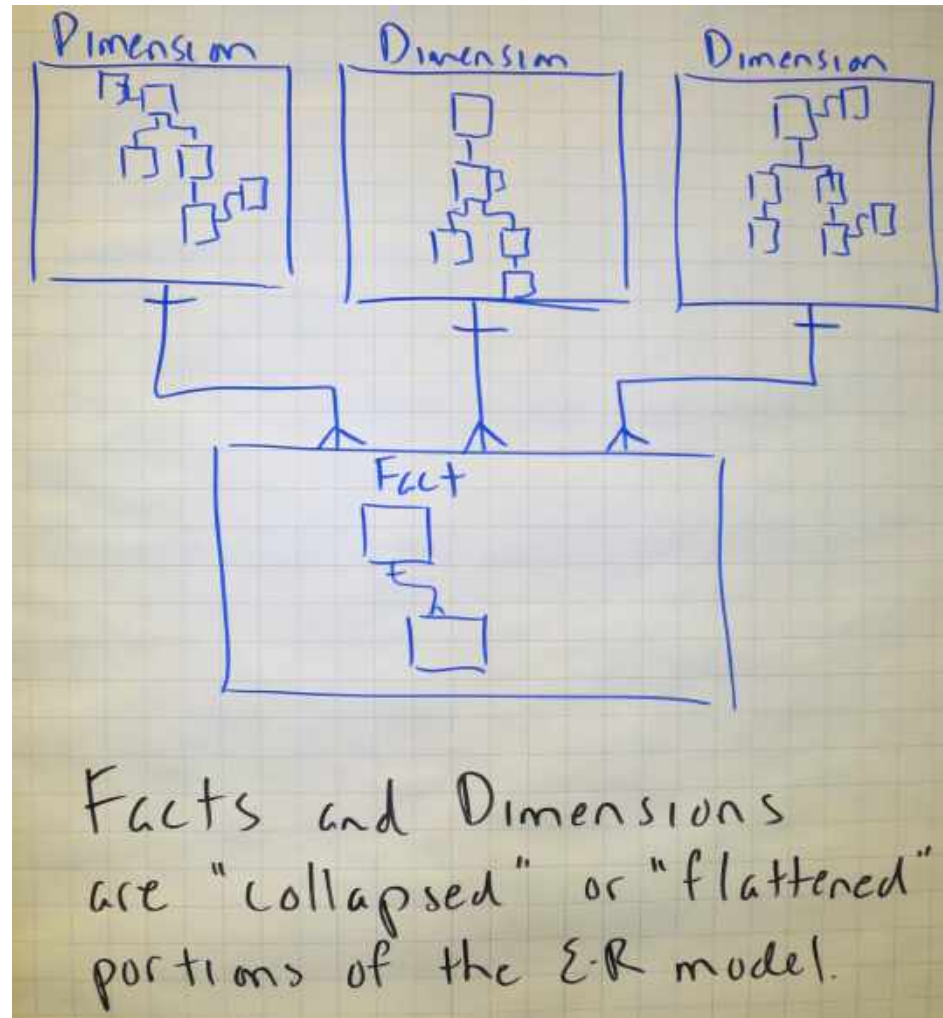 Dimension
Dimension
Dimension
Fact
Facts and Dimensions
are "collapsed" or "flattened"
portions of the E-R model.